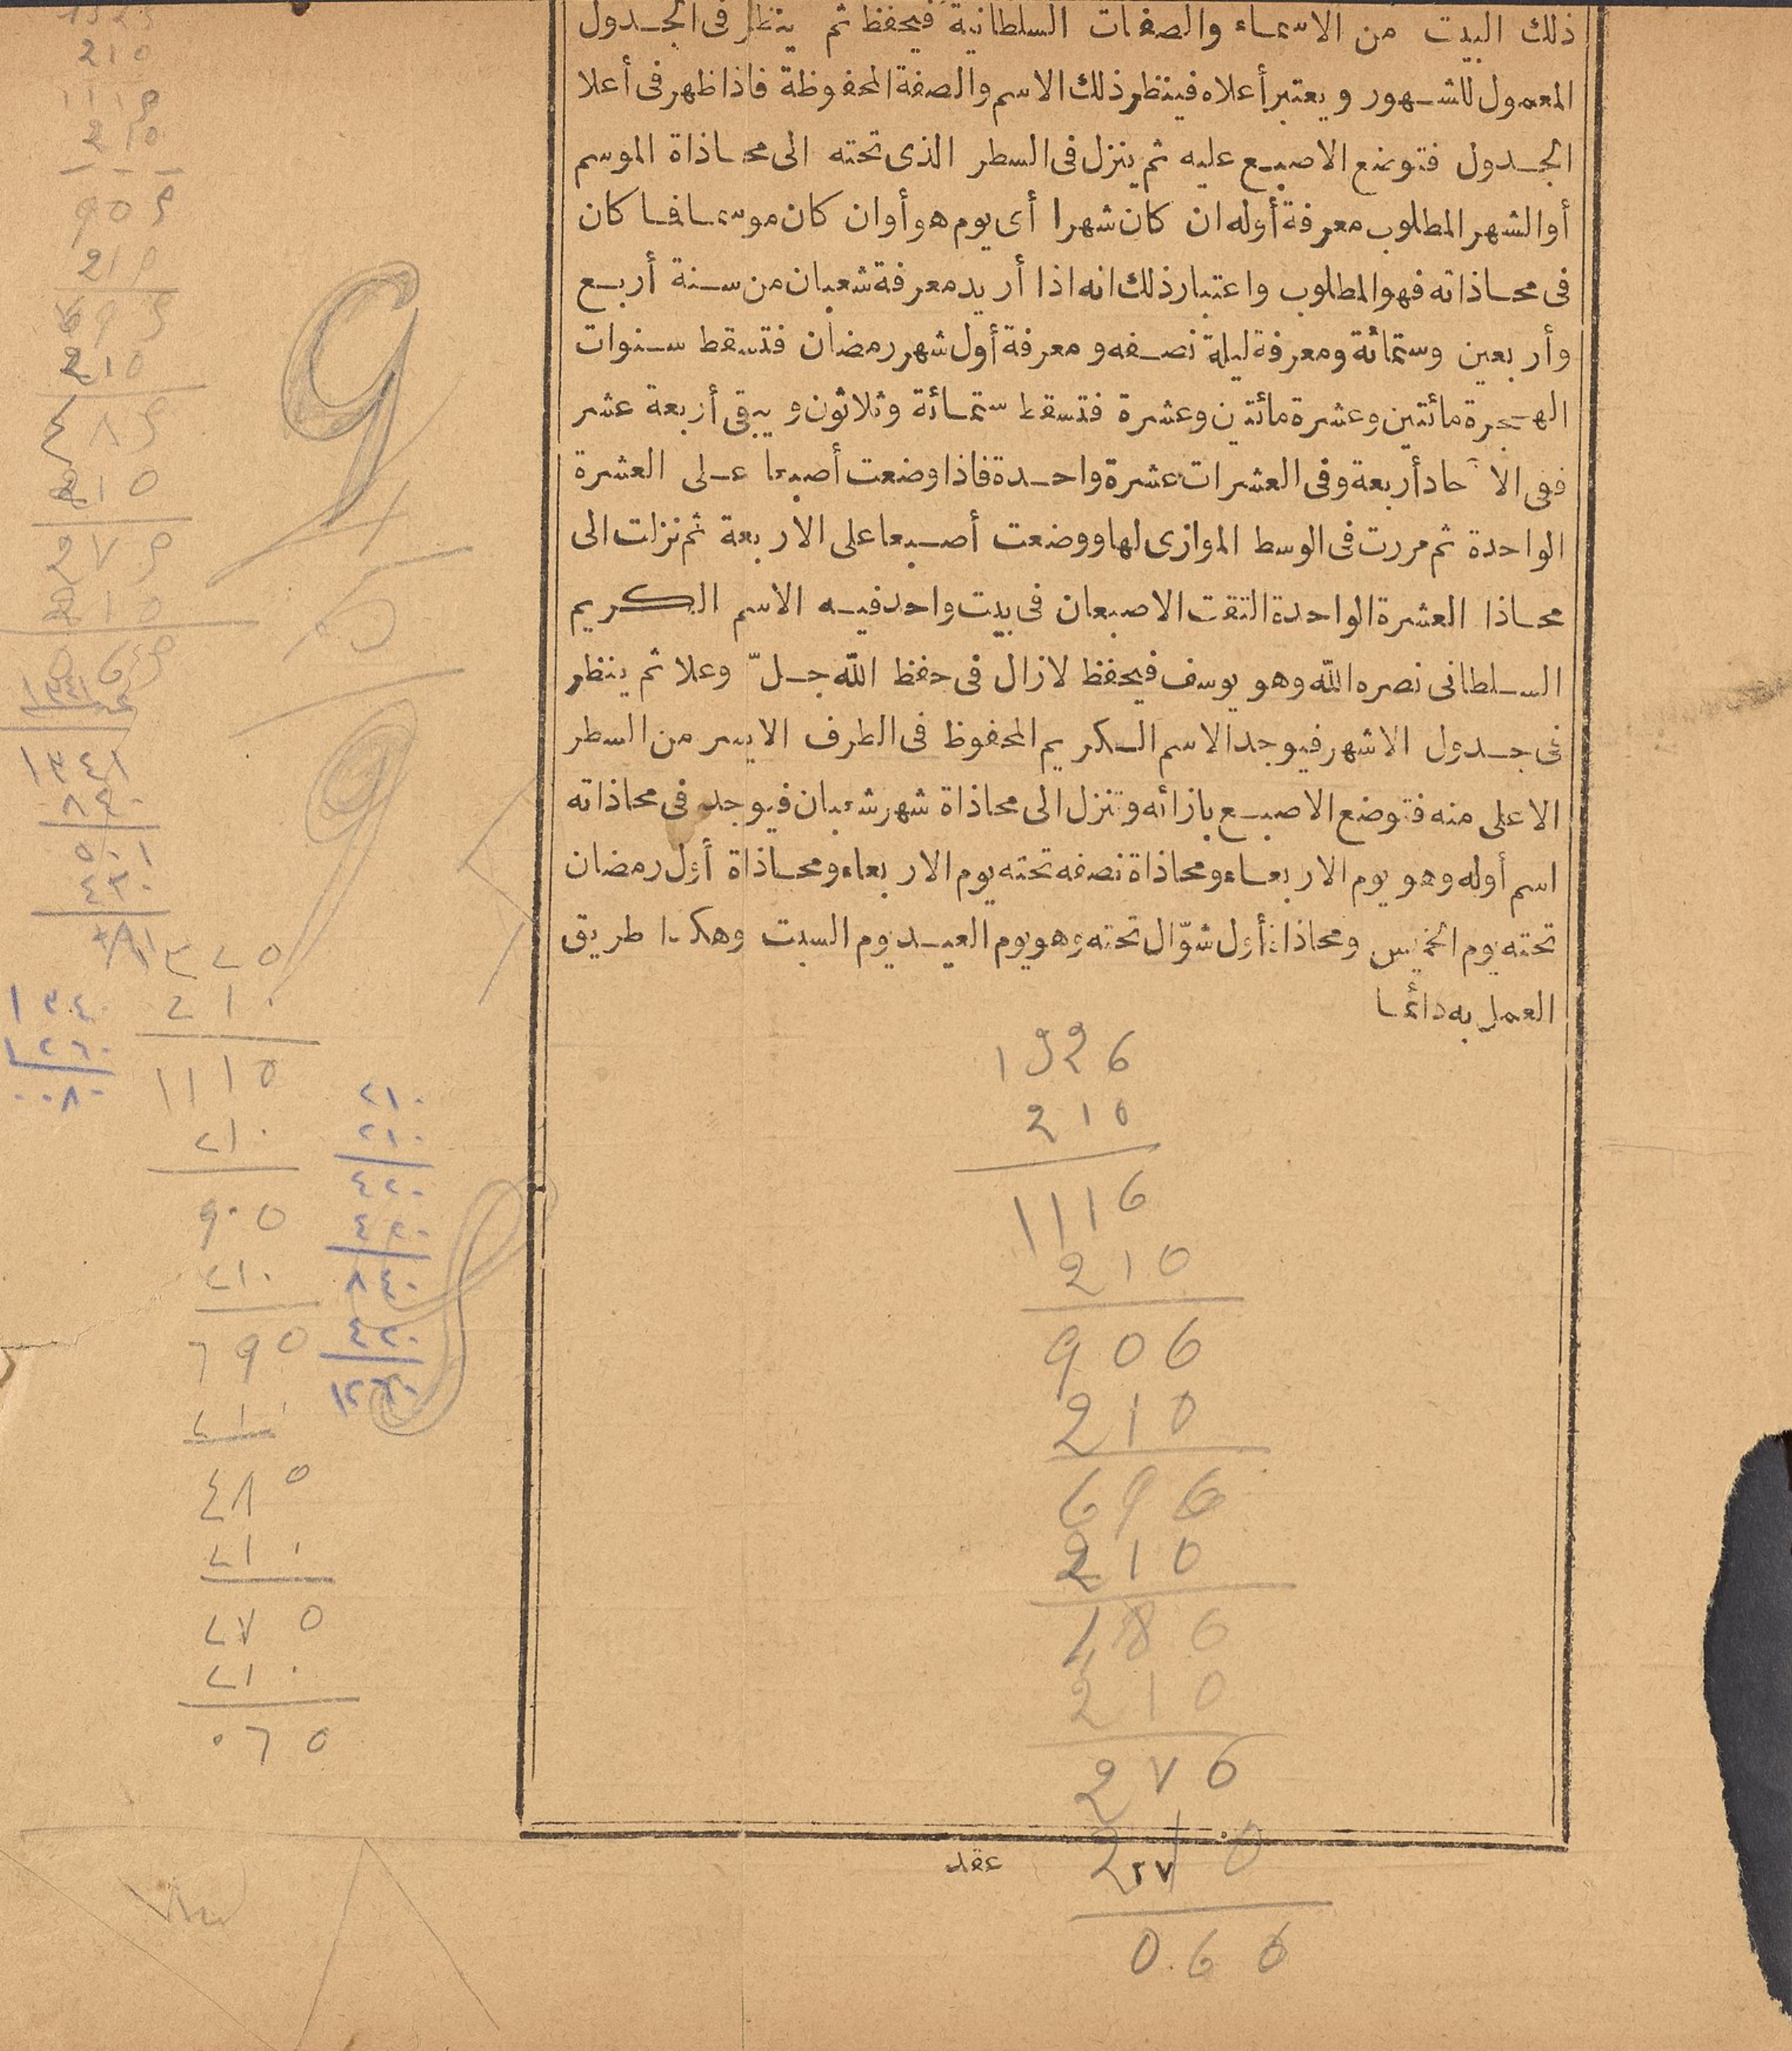 ذلك البيت من الاسماء والصفات السلطانية فيحفظ ثم ينظر فى الجدول
المعمول للشهور ويعتبر أعلاه فينظر ذلك الاسم والصفة المحفوظة فاذا ظهر فى أعلا
الجدول فتوضع الاصبع عليه ثم ينزل فى السطر الذى تحته الى محاذاة الموسم
أو الشهر المطلوب معرفة أوله ان كان شهرا أى يوم هو أوان كان موسما فما كان
فى محاذاته فهو المطلوب واعتبار ذلك انه اذا أريد معرفة شعبان من سنة أربع
وأربعين وستمائة ومعرفة ليلة نصفه ومعرفة أول شهر رمضان فتسقط سنوات
الهجرة مائتين وعشرة مائتين وعشرة فتسقط ستمائة وثلاثون ويبقى أربعة عشر
ففى الآحاد أربعة وفى العشرات عشرة واحدة فاذا وضعت أصبعا على العشرة
الواحدة ثم مررت فى الوسط الموازى لها ووضعت أصبعا على الاربعة ثم نزلت الى
محاذا العشرة الواحدة التقت الاصبعان فى بيت واحد فيه الاسم الكريم
السلطانى نصره الله وهو يوسف فيحفظ لازال فى حفظ الله جلّ وعلا ثم ينظر
فى جدول الاشهر فيوجد الاسم الكريم المحفوظ فى الطرف الايسر من السطر
الاعلى منه فتوضع الاصبع بازائه وتنزل الى محاذاة شهر شعبان فيوجد فى محاذاته
اسم أوله وهو يوم الاربعاء ومحاذاة نصفه تحته يوم الاربعاء ومحاذاة أول رمضان
تحته يوم الخميس ومحاذاة أول شوّال تحته وهو يوم العيد يوم السبت وهكذا طريق
العمل به دائما
210
1116
210
906
210
696
210
210
276
210
0.66
٢٧
عقد
210
210
210
210
١٣٤١
٨٤٠
٥٠١
٤٢٠
١٣٤٠
١٢٦٠
٠٠٨٠
٢١٠
١١١٥
٢١٠
٩٠٥
٢١٠
٦٩٥
٢١٠
٤٨٥
٢١٠
٢٧٥
٢١٠
٠٦٥
٢١٠
٢١٠
٤٢٠
٤٢٠
٨٤٠
٤٢٠
١٢٦٠